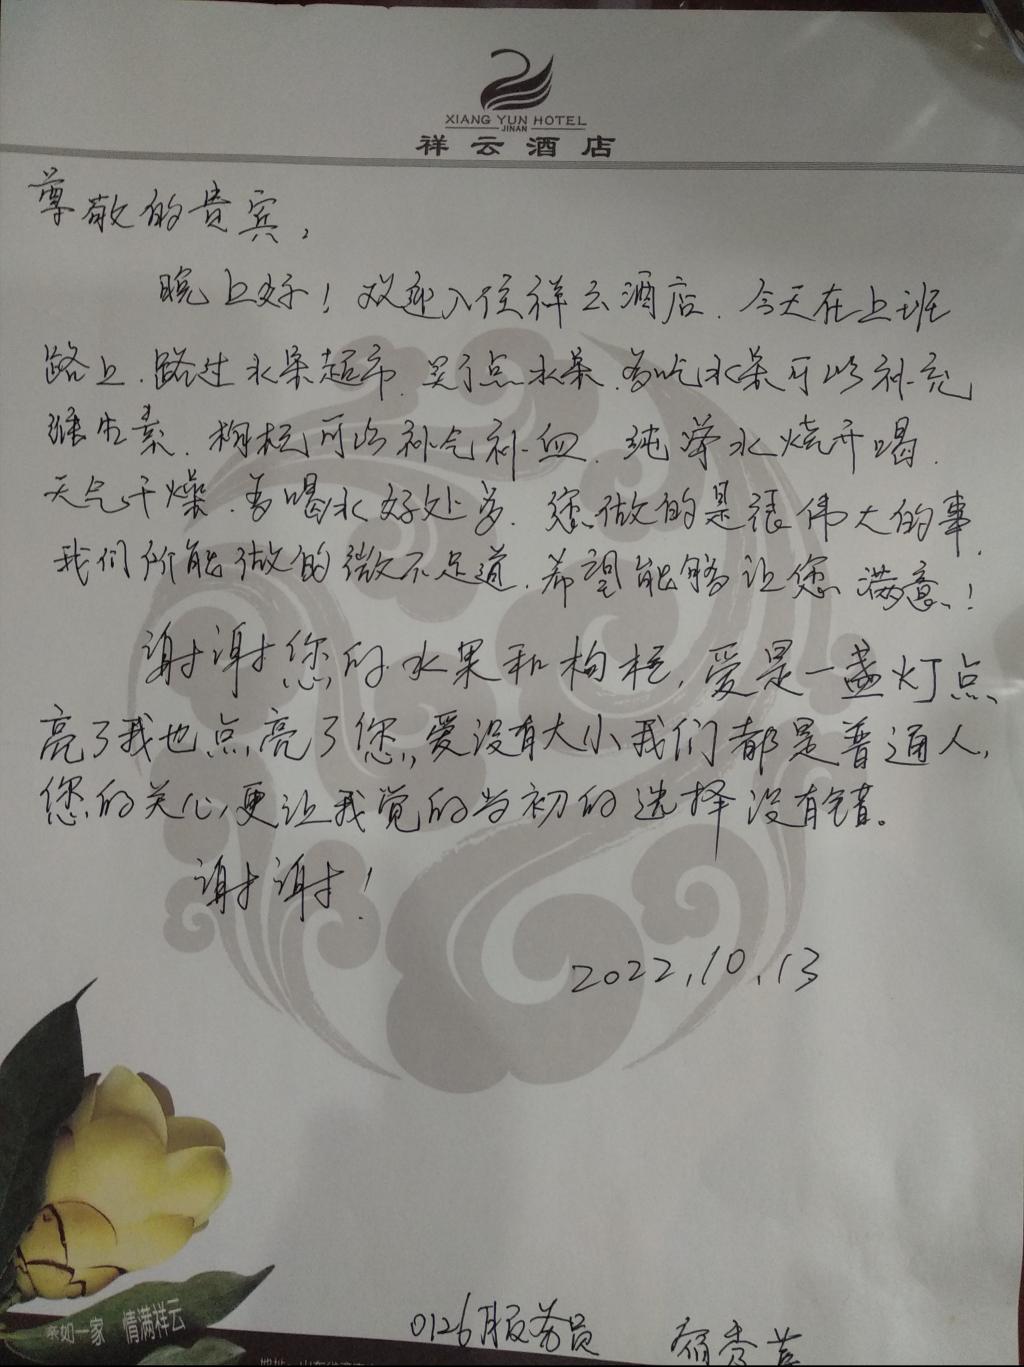 XIANG YUN HOTEL
JINAN
祥云酒店
尊敬的贵宾，
晚上好！欢迎入住祥云酒店．今天在上班
路上．路过水果超市．买了点水果．多吃水果可以补充
维生素．枸杞可以补气补血．纯净水烧开喝．
天气干燥．多喝水好处多．您做的是很伟大的事．
我们所能做的微不足道．希望能够让您满意！
谢谢您的水果和枸杞，爱是一盏灯点
亮了我也点亮了您，爱没有大小我们都是普通人，
您的关心更让我觉的当初的选择没有错。
谢谢！
2022.10.13
亲如一家 情满祥云
0126服务员
秀